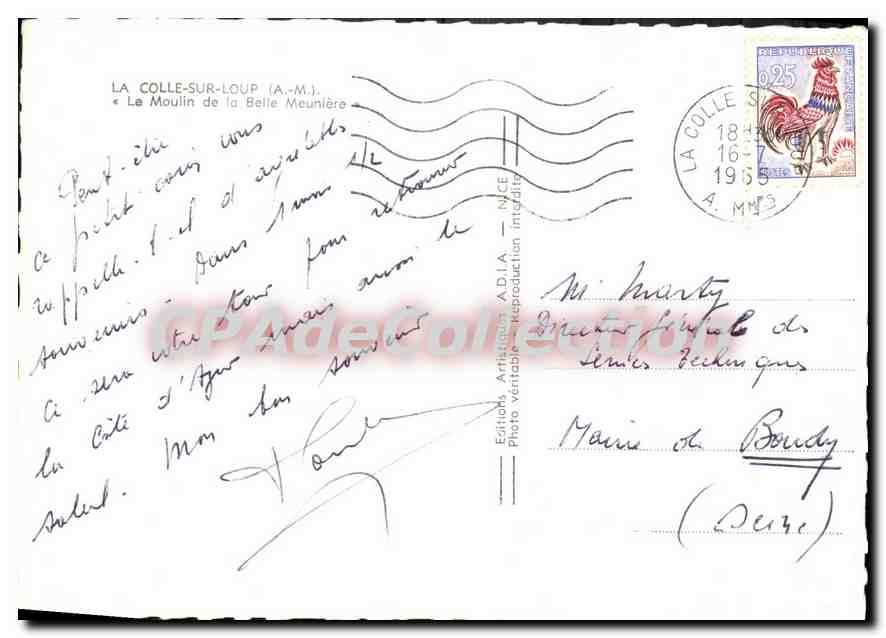 LA COLLE-SUR-LOUP (A.-M.).
« Le Moulin de la Belle Meunière »
Peut-être
ce petit coin vous
rappelle-t-il d'agréables
souvenirs. Dans 1 mois 1/2
ce sera votre tour pour retrouver
la Côte d'Azur mais avoir le
soleil. Mon bon souvenir
Editions Artistiques A.D.I.A. — NICE
Photo véritable - Reproduction interdite
REPUBLIQUE FRANÇAISE
0,25
POSTES
LA COLLE S
18H
16-7
1965
A. MMES
M Marty
Directeur Général des
Services Techniques
Mairie de Bondy
(Seine)
CPAdeCollection